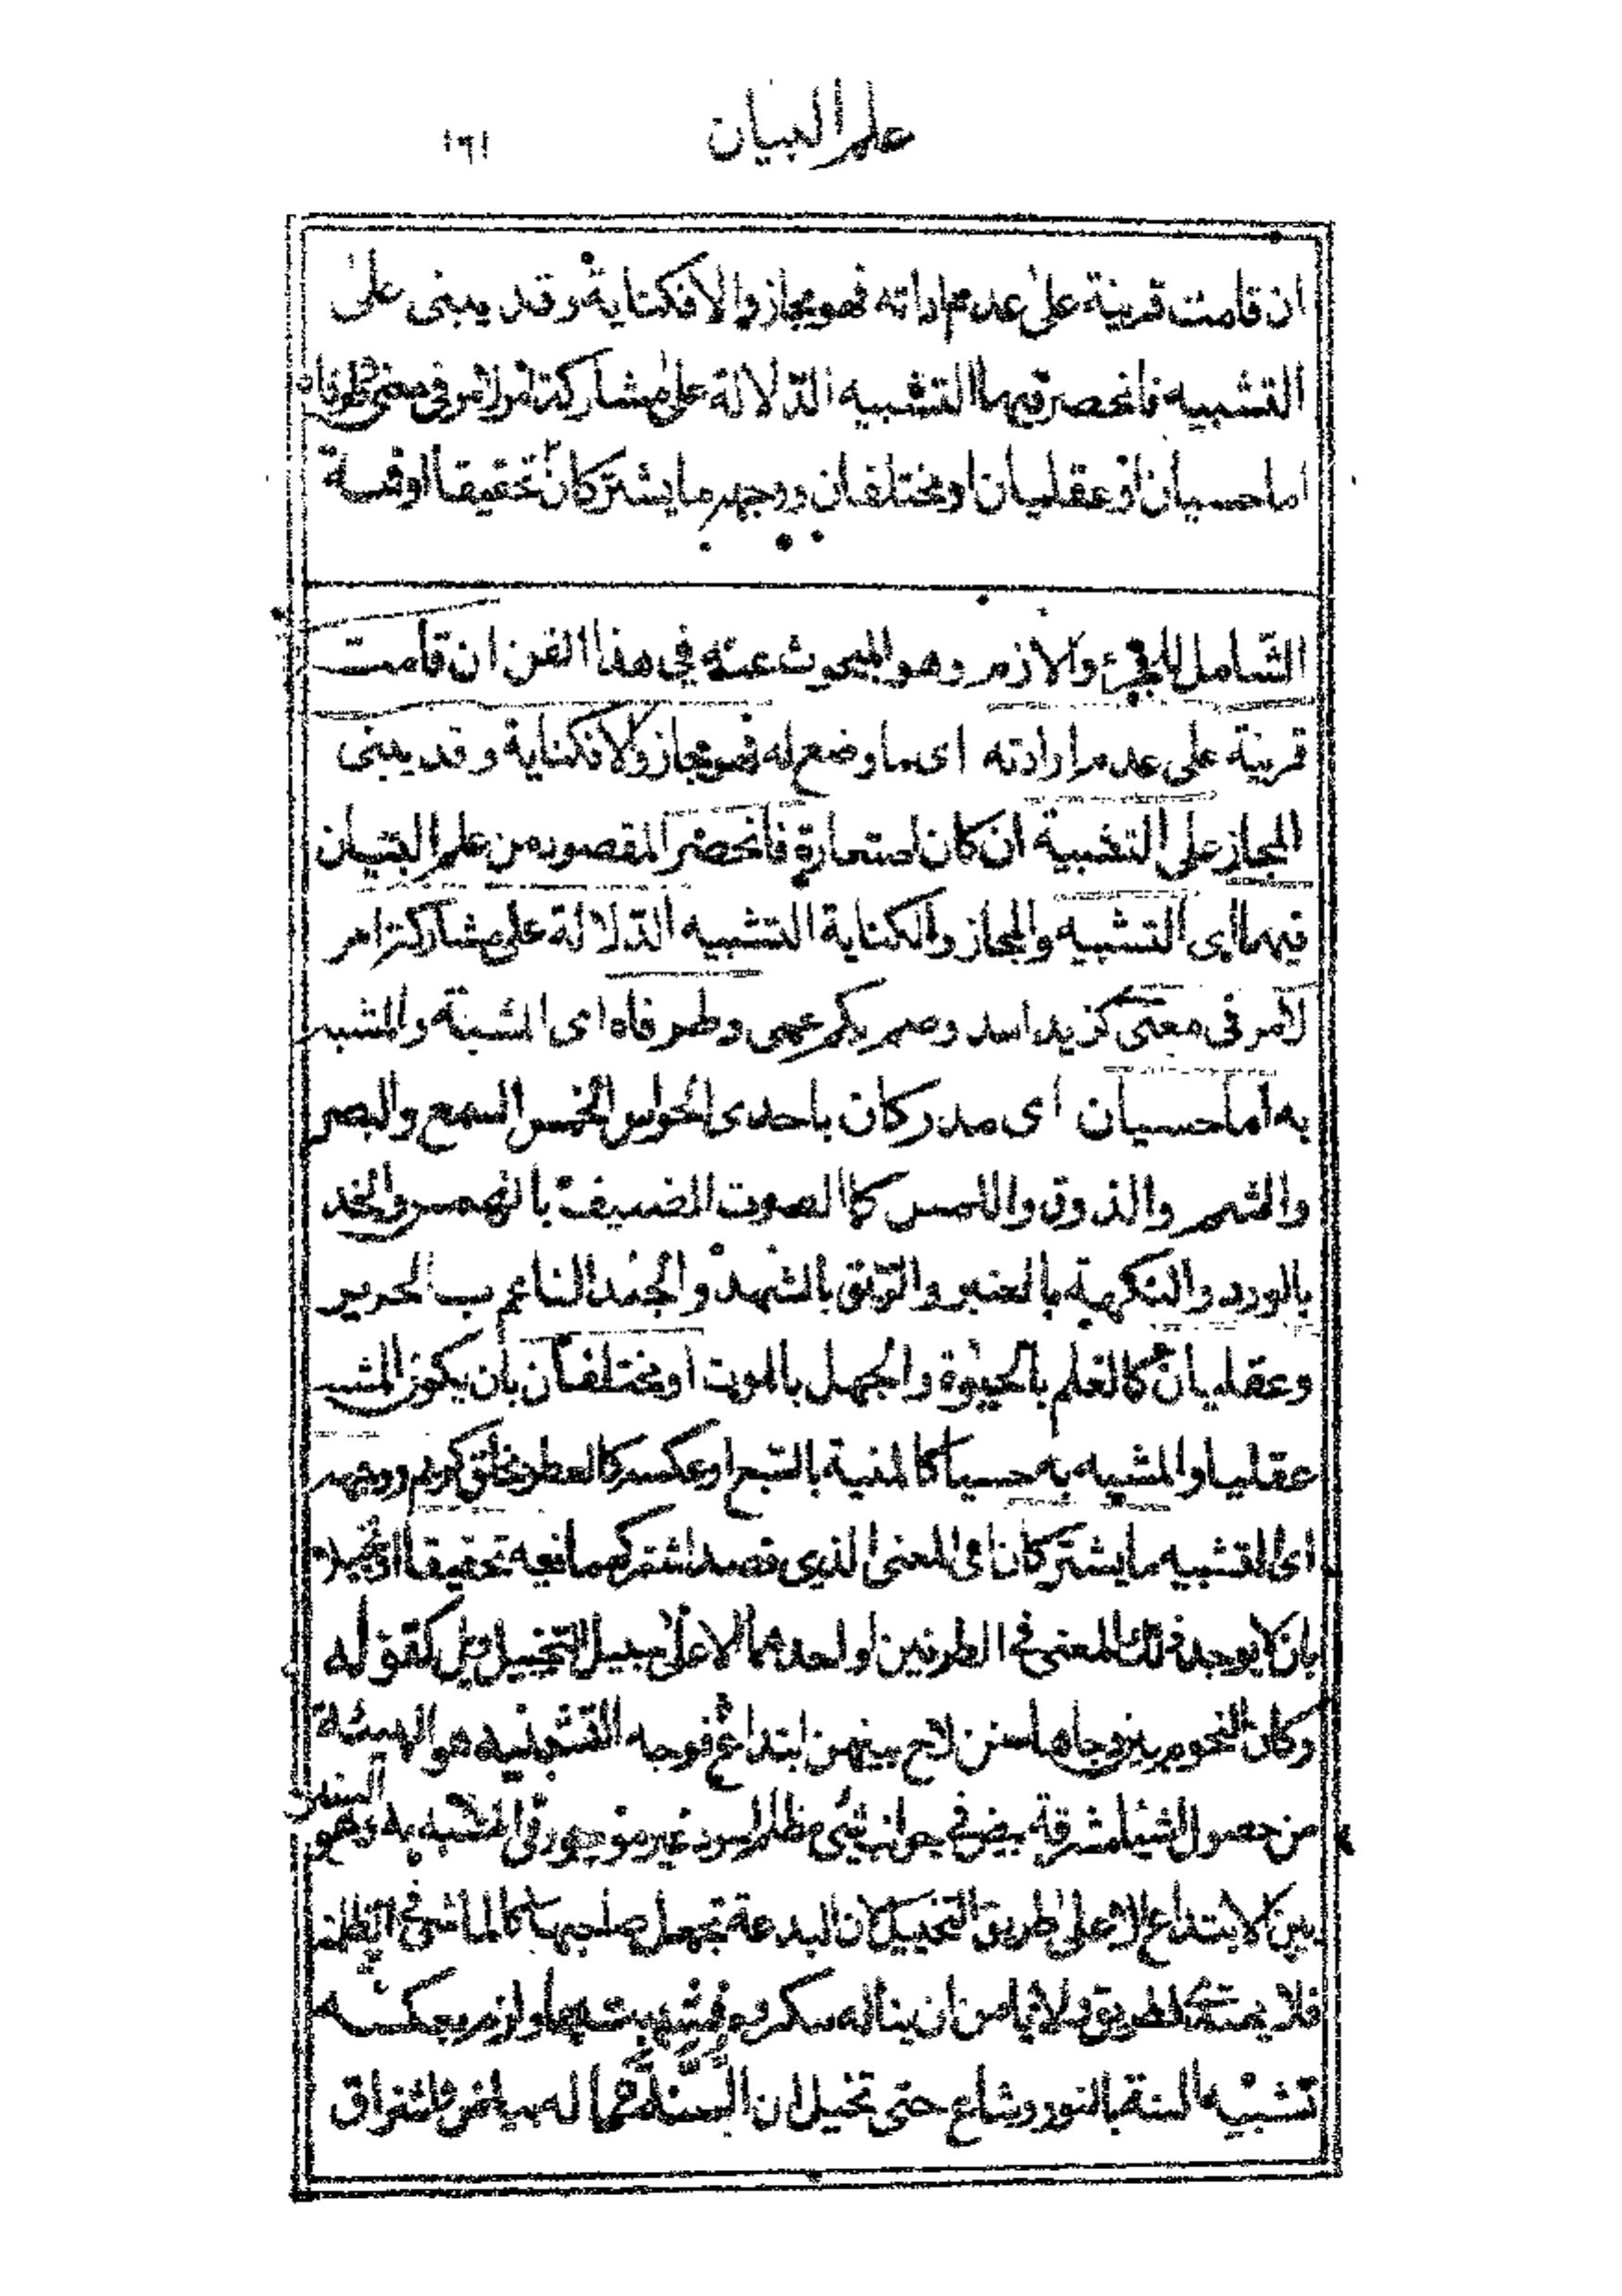 علم البيان ١٦١
ان قامت قرينة على عدم ارادته فهو مجاز والا فكناية وقد يبنى على
التشبيه فانحصر فيهما التشبيه الدلالة على مشاركة امر لامر في معنى وطرفاه
اما حسيان او عقليان او مختلفان ووجهه ما يشتركان تحقيقا او
الشامل للجزء والازم وهو المبحوث عنه في هذا الفن ان قامت
قرينة على عدم ارادته اى ما وضع له فهو مجاز والا فكناية وقد يبنى
المجاز على التشبية ان كان استعارة فانحصر المقصود من علم البيان
فيهما اى التشبيه والمجاز والكناية التشبيه الدلالة على مشاركة امر
لامر فى معنى كزيد اسد وصم بكم عمى وطرفاه اى المشبة والمشبه
به اما حسيان اى مدركان باحدى الحواس الخمس السمع والبصر
والشم والذوق واللمس كالصوت الضعيف بالهمس والخد
بالورد والنكهية بالعنبر والريق بالشهد والجلد الناعم ب الحرير
وعقليان كالعلم بالحيوة والجهل بالموت او مختلفان بان يكون المشبه
عقليا والمشبه به حسيا كالمنية بالسبع او عكسه كالعطر بخلق كريم ووجهه
اى التشبيه ما يشتركان اى المعنى الذى قصد اشتراكهما فيه تحقيقا او تخييلا
بان لا يوجد ذلك المعنى في الطرفين او احدهما الا على سبيل التخييل كقوله
وكان النجوم بين دجاها سنن لاح بينهن ابتداع فوجه التشبيه هو الهيئة
من حصول اشياء مشرقة بيض في جوانب شئ مظلم اسود غير موجود فى المشبه به وهو السنن
بين الابتداع الا على طريق التخييل لان البدعة تجعل صاحبها كالماشى في الظلمة
فلا يهتدى للطريق ولا يامن ان يناله مكروه فشبهت بها ولزم بعكسه
تشبيه السنة بالنور وشاع حتى تخيل ان السنة مما له بياض واشراق